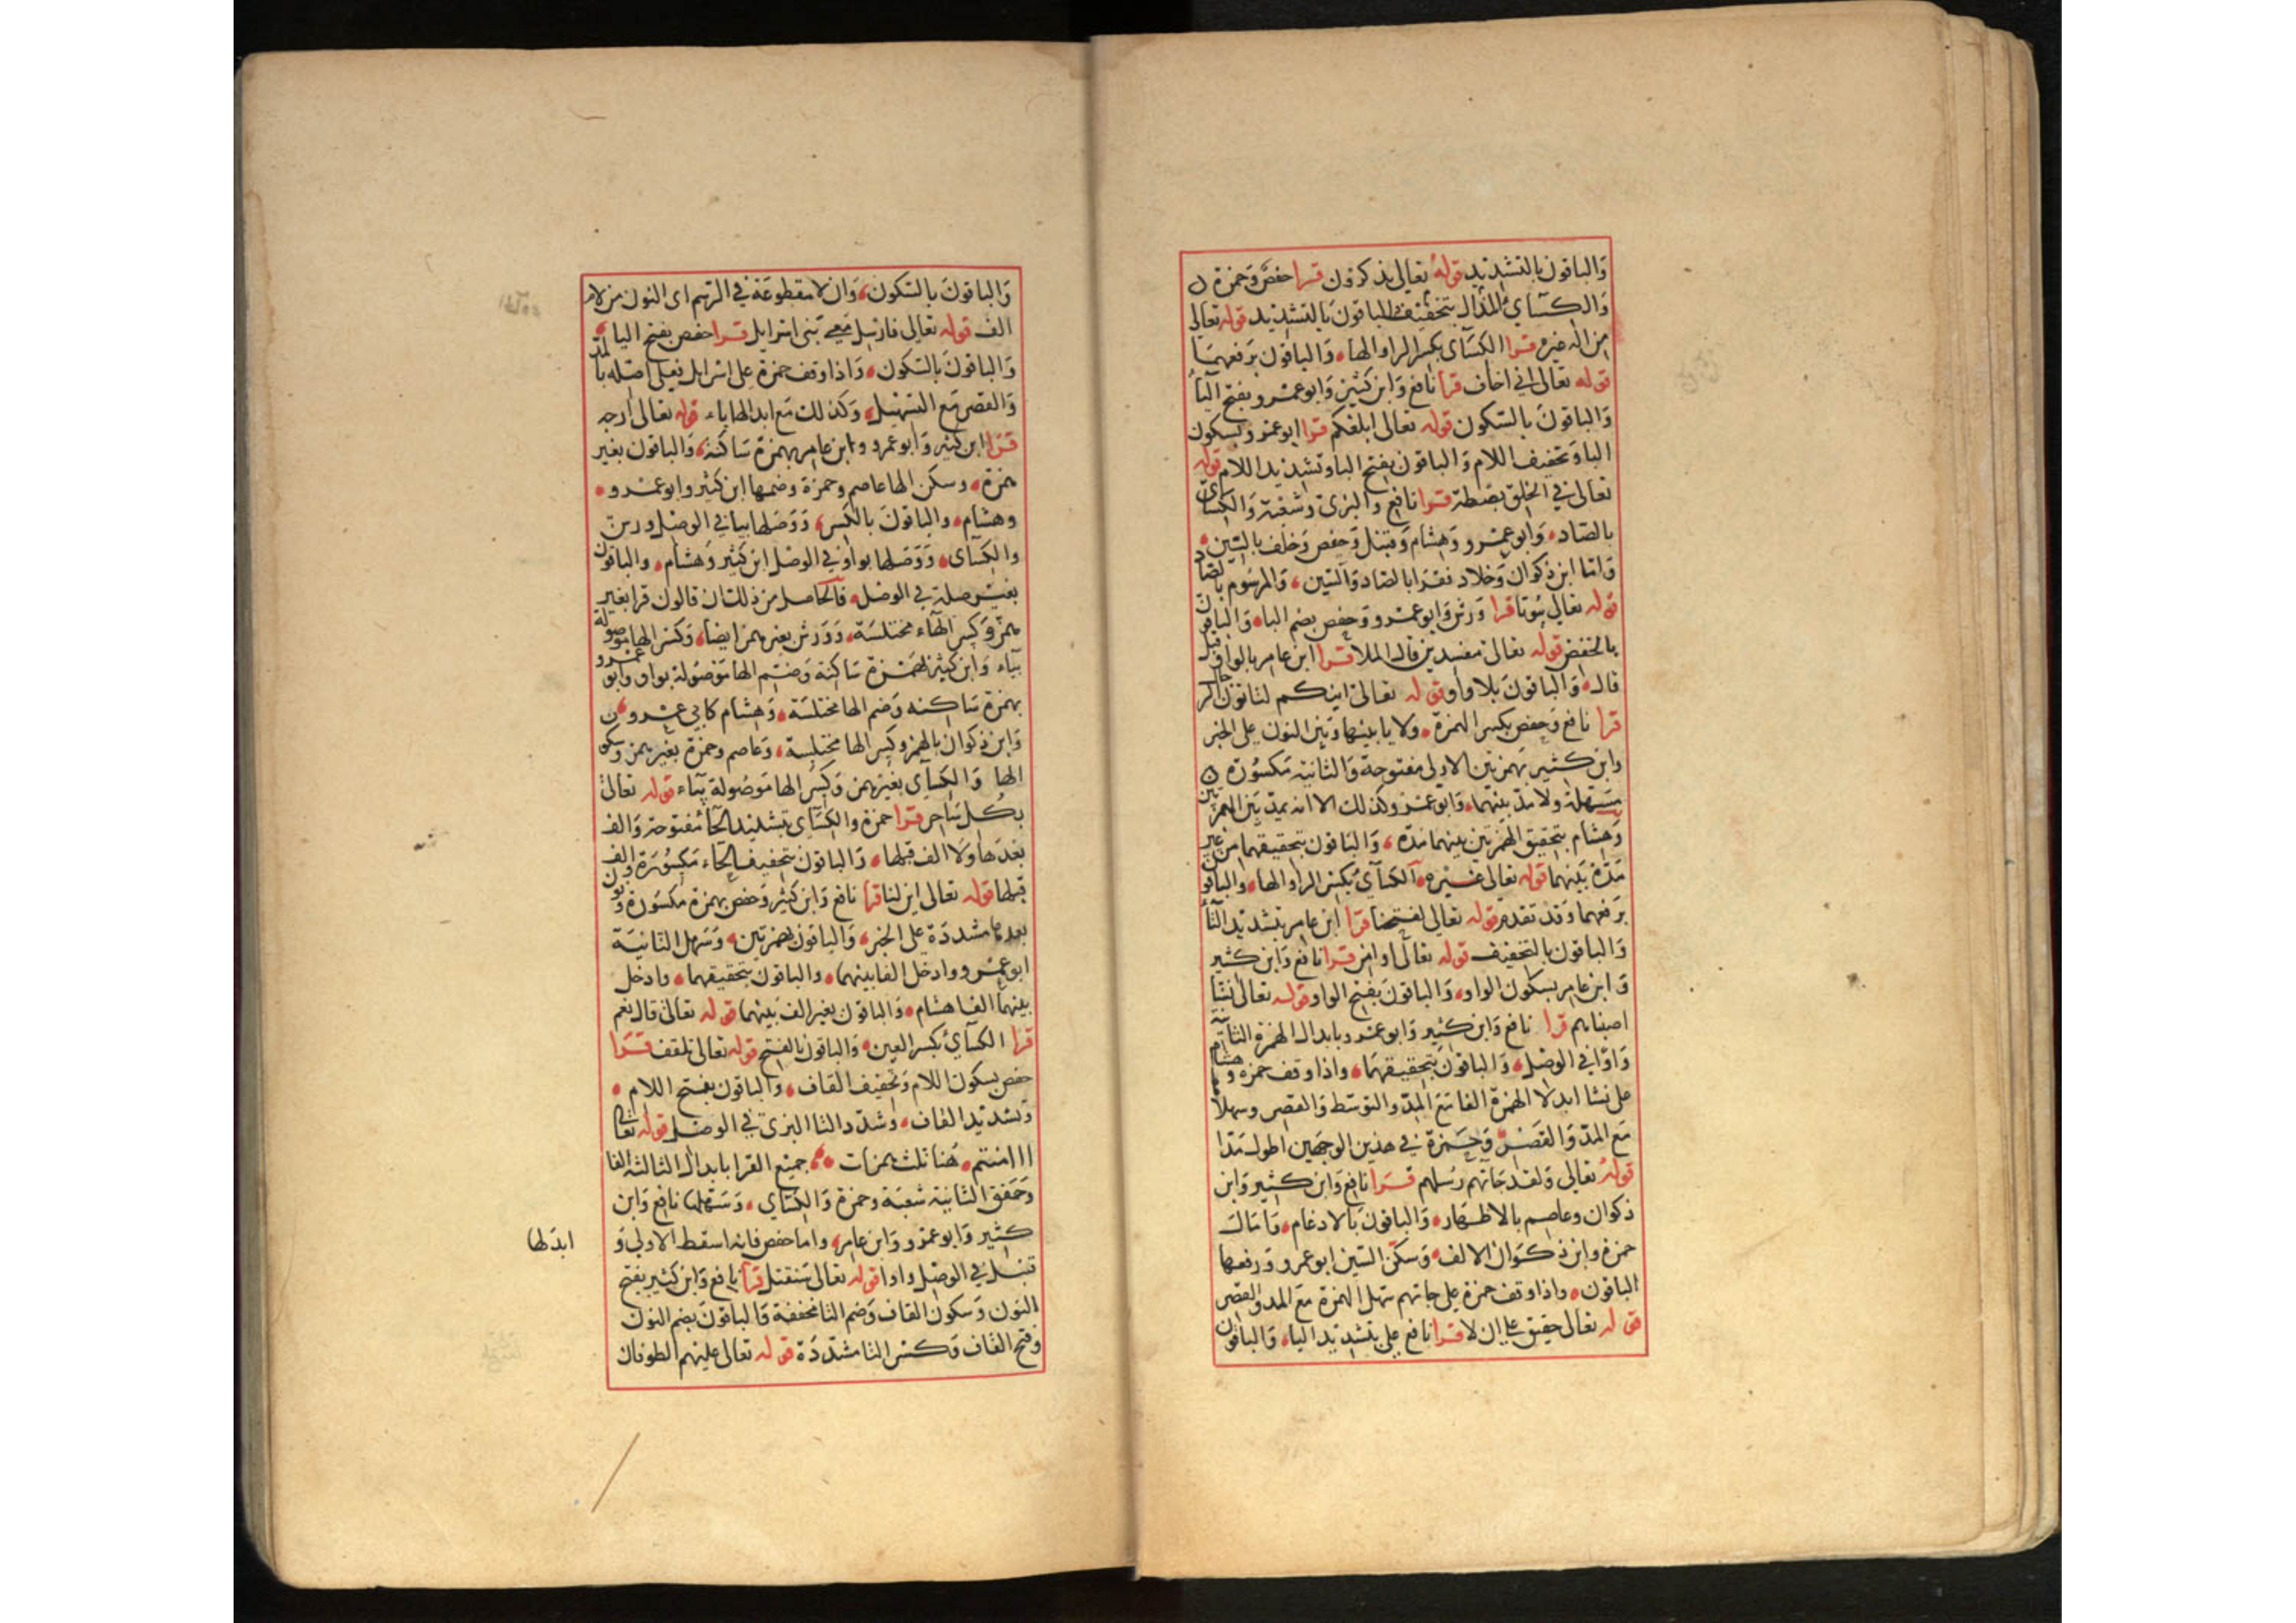 وَالباقون بالتشديد قوله تعالى يذكرون قرا حفص وحمزة
وَالكسآيُ الذال بتخفيف والباقونَ بالتشديد قوله تعالى
من اله غيره قرا الكسآى بكسر الرا والها، وَالباقون برَفعهمَا
قوله تعالى انى اخاف قرا نافع وَابن كثير وَابو عمرو بفتح اليآ
وَالباقونَ بالسكون قوله تعالى ابلغكم قرا ابو عمرو بسكون
البا وَتخفيف اللام وَالباقون بفتح البا وتشديد اللام قوله
تعالى في الخلق بصطة قرا نافع والبزى وشعبة وَالكسآى
بالصاد، وَابو عمرو وَهشام وَقنبل وَحفص وَخلف بالسين،
وَاما ابن ذكوان وَخلاد فقرا بالصاد وَالسين، وَالمرسُوم بالصاد
قوله تعالى بيُوتا قرا وَرش وَابو عمرو وَحفص بضم البا، وَالباقون
بالخفض قوله تعالى مفسدين قال الملا قرا ابن عامر بالواو قبل
قال، وَالباقونَ بلا واو قوله تعالى اينكم لتاتون الرجال
قرا نافع وَحفص بكسر الهمزة، ولا يا بينها وَبين النون على الخبر
وابن كثير بهمزتين الاولى مفتوحة وَالثانية مكسُورَة
مسَهلة ولا مدّ بينهما، وَابو عمرو وكذلك الا انه يمدّ بَين الهمزتين
وَهشام بتحقيق الهمزتين بينهما مدّه، وَالبَاقون بتحقيقهما من غير
مَدّة بَينهما قوله تعالى غيره، الكسآيُ بكسر الرا والها، والباقون
برَفعهما وَقد تقدم قوله تعالى لفتحنا قرا ابن عامر بتشديد التآ
وَالباقون بالتخفيف قوله تعالى اوامن قرا نافع وَابن كثير
وَابن عامر بسكون الواو، وَالباقونَ بفتح الواو قوله تعالى نشآ
اصبناهم قرا نافع وَابن كثير وَابو عمرو بابدال الهمزة الثانية
وَاوًا في الوصل، وَالباقونَ بتحقيقهمَا، واذا وقف حمزه وهشام
على نشا ابدلا الهمزة الفا مَع المدّ والتوسّط وَالقصر وسهلا
مَع المدّ وَالقصر، وَحمزة في هذين الوَجهَين اطول مَدّا
قوله تعالى وَلقد جَاتهم رسُلهم قرا نافع وَابن كثير وَابن
ذكوان وعاصم بالاظهار، وَالباقونَ بالادغام، وَامَال
حمزة وابن ذكوَان الالف، وَسكّن السّين ابو عمرو وَرَفعهَا
الباقون، واذا وقف حمزة على جاتهم سَهل الهمزة مَع المد والقصر
قوله تعالى حقيق على ان لا قرا نافع على بتشديد اليا، وَالباقون
وَالباقونَ بالسّكون، وَان لا مقطوعَة في الرسم اى النون من لام
الف قوله تعالى فارسل معى بنى اسرايل قرا حفص بفتح اليا،
وَالباقونَ بالسّكون، وَاذا وقف حمزة على اسرايل فعلى اصله بالمد
وَالقصر مَع التسهيل، وَكذلك مَع ابدالها ياء قوله تعالى ارجه
قرا ابن كثير وَابو عمرو وابن عامر بهمزة سَاكنة، وَالباقون بغير
همزة، وسكن الها عاصم وحمزة وضمها ابن كثير وابو عمرو،
وهشام، والباقونَ بالكسر، وَوَصلها بيا في الوصل ورش
والكسآى، وَوَصَلها بواو في الوصل ابن كثير وَهشام، والباقون
بغير صلة في الوصل، فالحاصل من ذلك ان قالون قرا بغير
همز وَكسر الهآء مختلسَة، وَوَرش بغير همز ايضا، وَكسر الها موصولة
بيآء وَابن كثير بهمزة سَاكنة وَضم الها مَوصُولة بواو وابو عمرو
بهمزة سَاكنه وَضم الها مختلسَة، وَهشام كابى عمرو،
وَابن ذكوان بالهمز وكسر الها مختلسة، وَعاصم وحمزة بغير همز وسكون
الها وَالكسآى بغير همز وَكسر الها مَوصُولة بيآء قوله تعالى
بكل سَاحر قرا حمزة والكسَآى بتشديد الحآ مفتوحة وَالف
بَعدهَا وَلا الف قبلها، وَالباقون بتخفيف الحَاء مَكسُورَة والف
قبلها قوله تعالى اين لنا قرا نافع وَابن كثير وَحفص بهمزة مكسُورة ونون
بعدها مشددة على الخبر، وَالباقون بهمزتين، وَسَهل الثانيَة
ابو عمرو وادخل الفا بينهما، والباقون بتحقيقهما، وادخل
بينهما الفا هشام، وَالباقون بغير الف بَينهما قوله تعالى قال نعم
قرا الكسآيُ بكسر العين، وَالباقون بالفتح قوله تعالى تلقف قرا
حفص بسكون اللام وَتخفيف القاف، وَالباقون بفتح اللام،
وَتشديد القاف، وشدّد التا البزى في الوصل قوله تعالى
ااامنتم، هُنا ثلث همزات، جميع القرا بابدال الثالثة الفا
وَحَقق الثانية شعبَة وحمزة وَالكسَآي، وَسَهلها نافع وَابن
كثير وَابو عمرو وَابن عامر، واما حفص فانه اسقط الاولى وَ
ابدَلها
قنبل في الوصل واوا قوله تعالى سَنقتل قرا نافع وَابن كثير بفتح
النون وَسكون القاف وَضم التا مخففة وَالباقونَ بضم النون
وفتح القاف وَكسر التا مشدّدَة قوله تعالى عليهم الطوفان